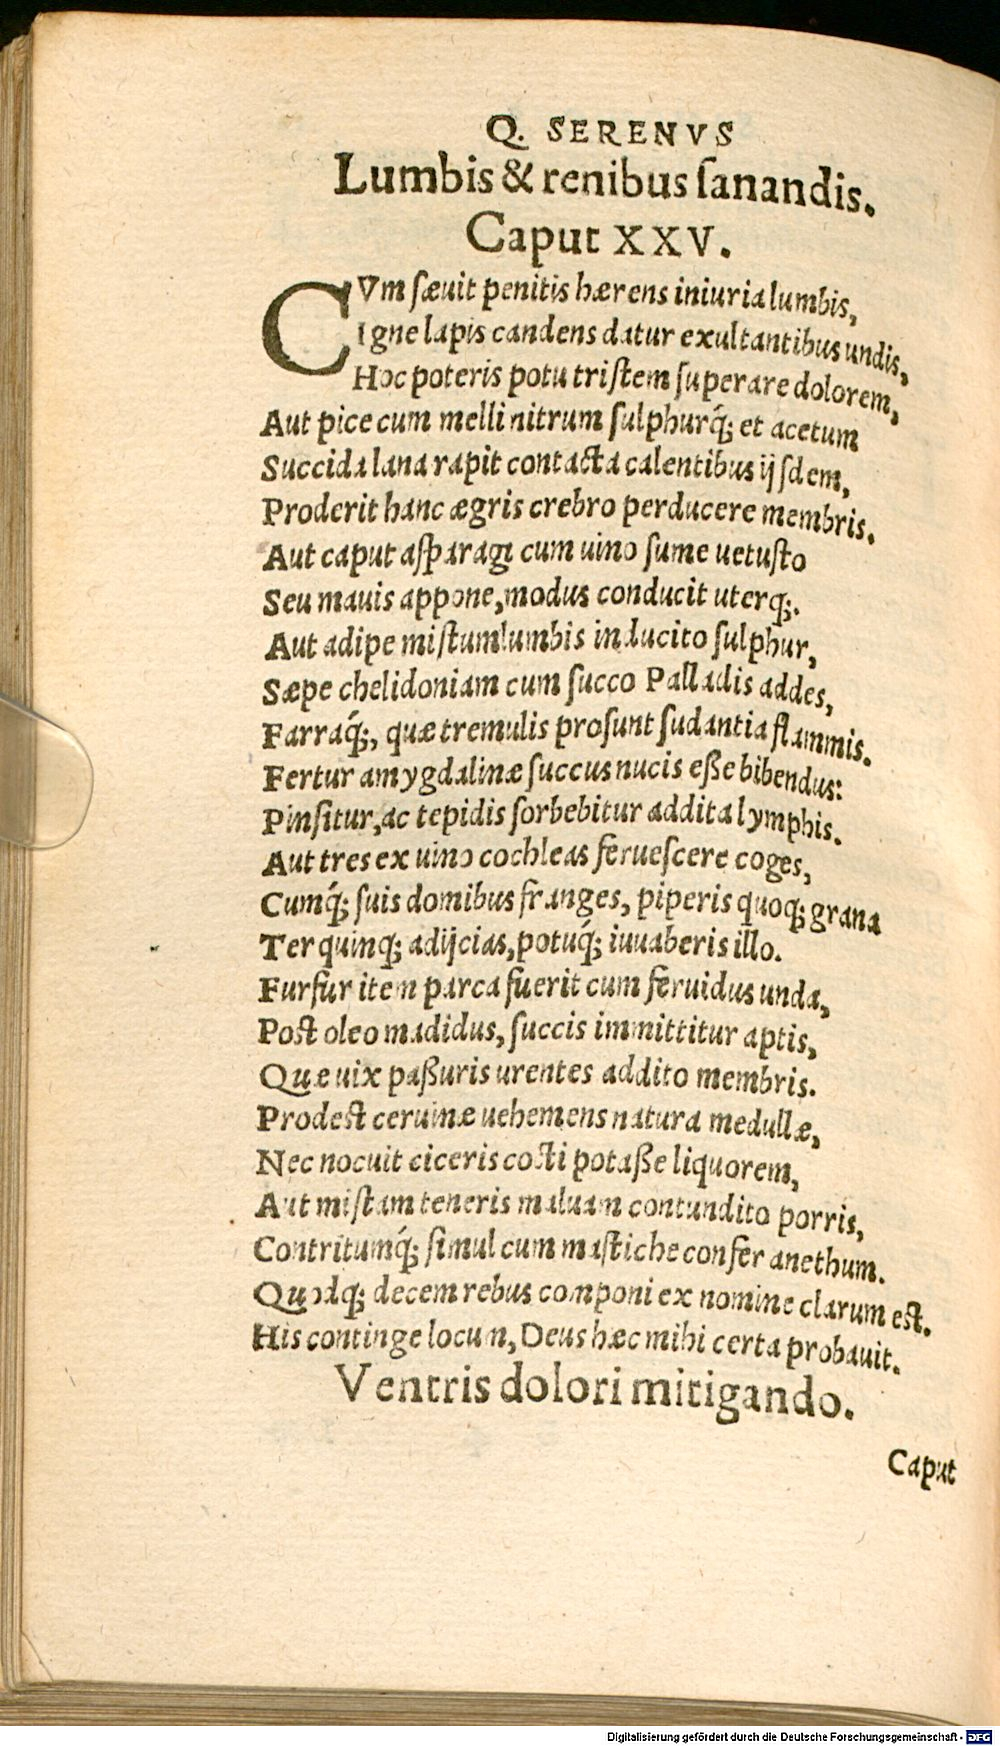 Q. SERENVS
Lumbis & renibus ſanandis.
Caput XXV.
CVm ſæuit penitis hærens iniuria lumbis,
Igne lapis candens datur exultantibus undis,
Hoc poteris potu triſtem ſuperare dolorem,
Aut pice cum melli nitrum ſulphurq́; et acetum
Succida lana rapit contacta calentibus ijſdem,
Proderit hanc ægris crebro perducere membris.
Aut caput aſparagi cum uino ſume uetuſto
Seu mauis appone, modus conducit uterq;.
Aut adipe miſtum lumbis inducito ſulphur,
Sæpe chelidoniam cum ſucco Palladis addes,
Farraq́;, quæ tremulis proſunt ſudantia flammis.
Fertur amygdalinæ ſuccus nucis eße bibendus:
Pinſitur, ac tepidis ſorbebitur addita lymphis.
Aut tres ex uino cochleas ferueſcere coges,
Cumq́; ſuis domibus franges, piperis quoq; grana
Ter quinq; adijcias, potuq́; iuuaberis illo.
Furfur item parca fuerit cum feruidus unda,
Poſt oleo madidus, ſuccis immittitur aptis,
Quæ uix paßuris urentes addito membris.
Prodeſt ceruinæ uehemens natura medullæ,
Nec nocuit ciceris cocti potaße liquorem,
Aut miſtam teneris maluam contundito porris,
Contritumq́; ſimul cum maſtiche confer anethum.
Quodq; decem rebus componi ex nomine clarum eſt.
His continge locum, Deus hæc mihi certa probauit.
Ventris dolori mitigando.
Caput
Digitalisierung gefördert durch die Deutsche Forschungsgemeinschaft - DFG